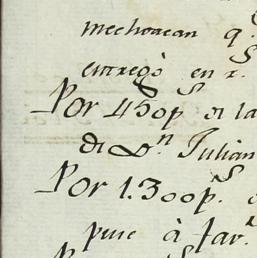 mechoacan q.
entregò en r.
Por 450p. di la
di D.n Julian
Por 1.300p.
puse à far.